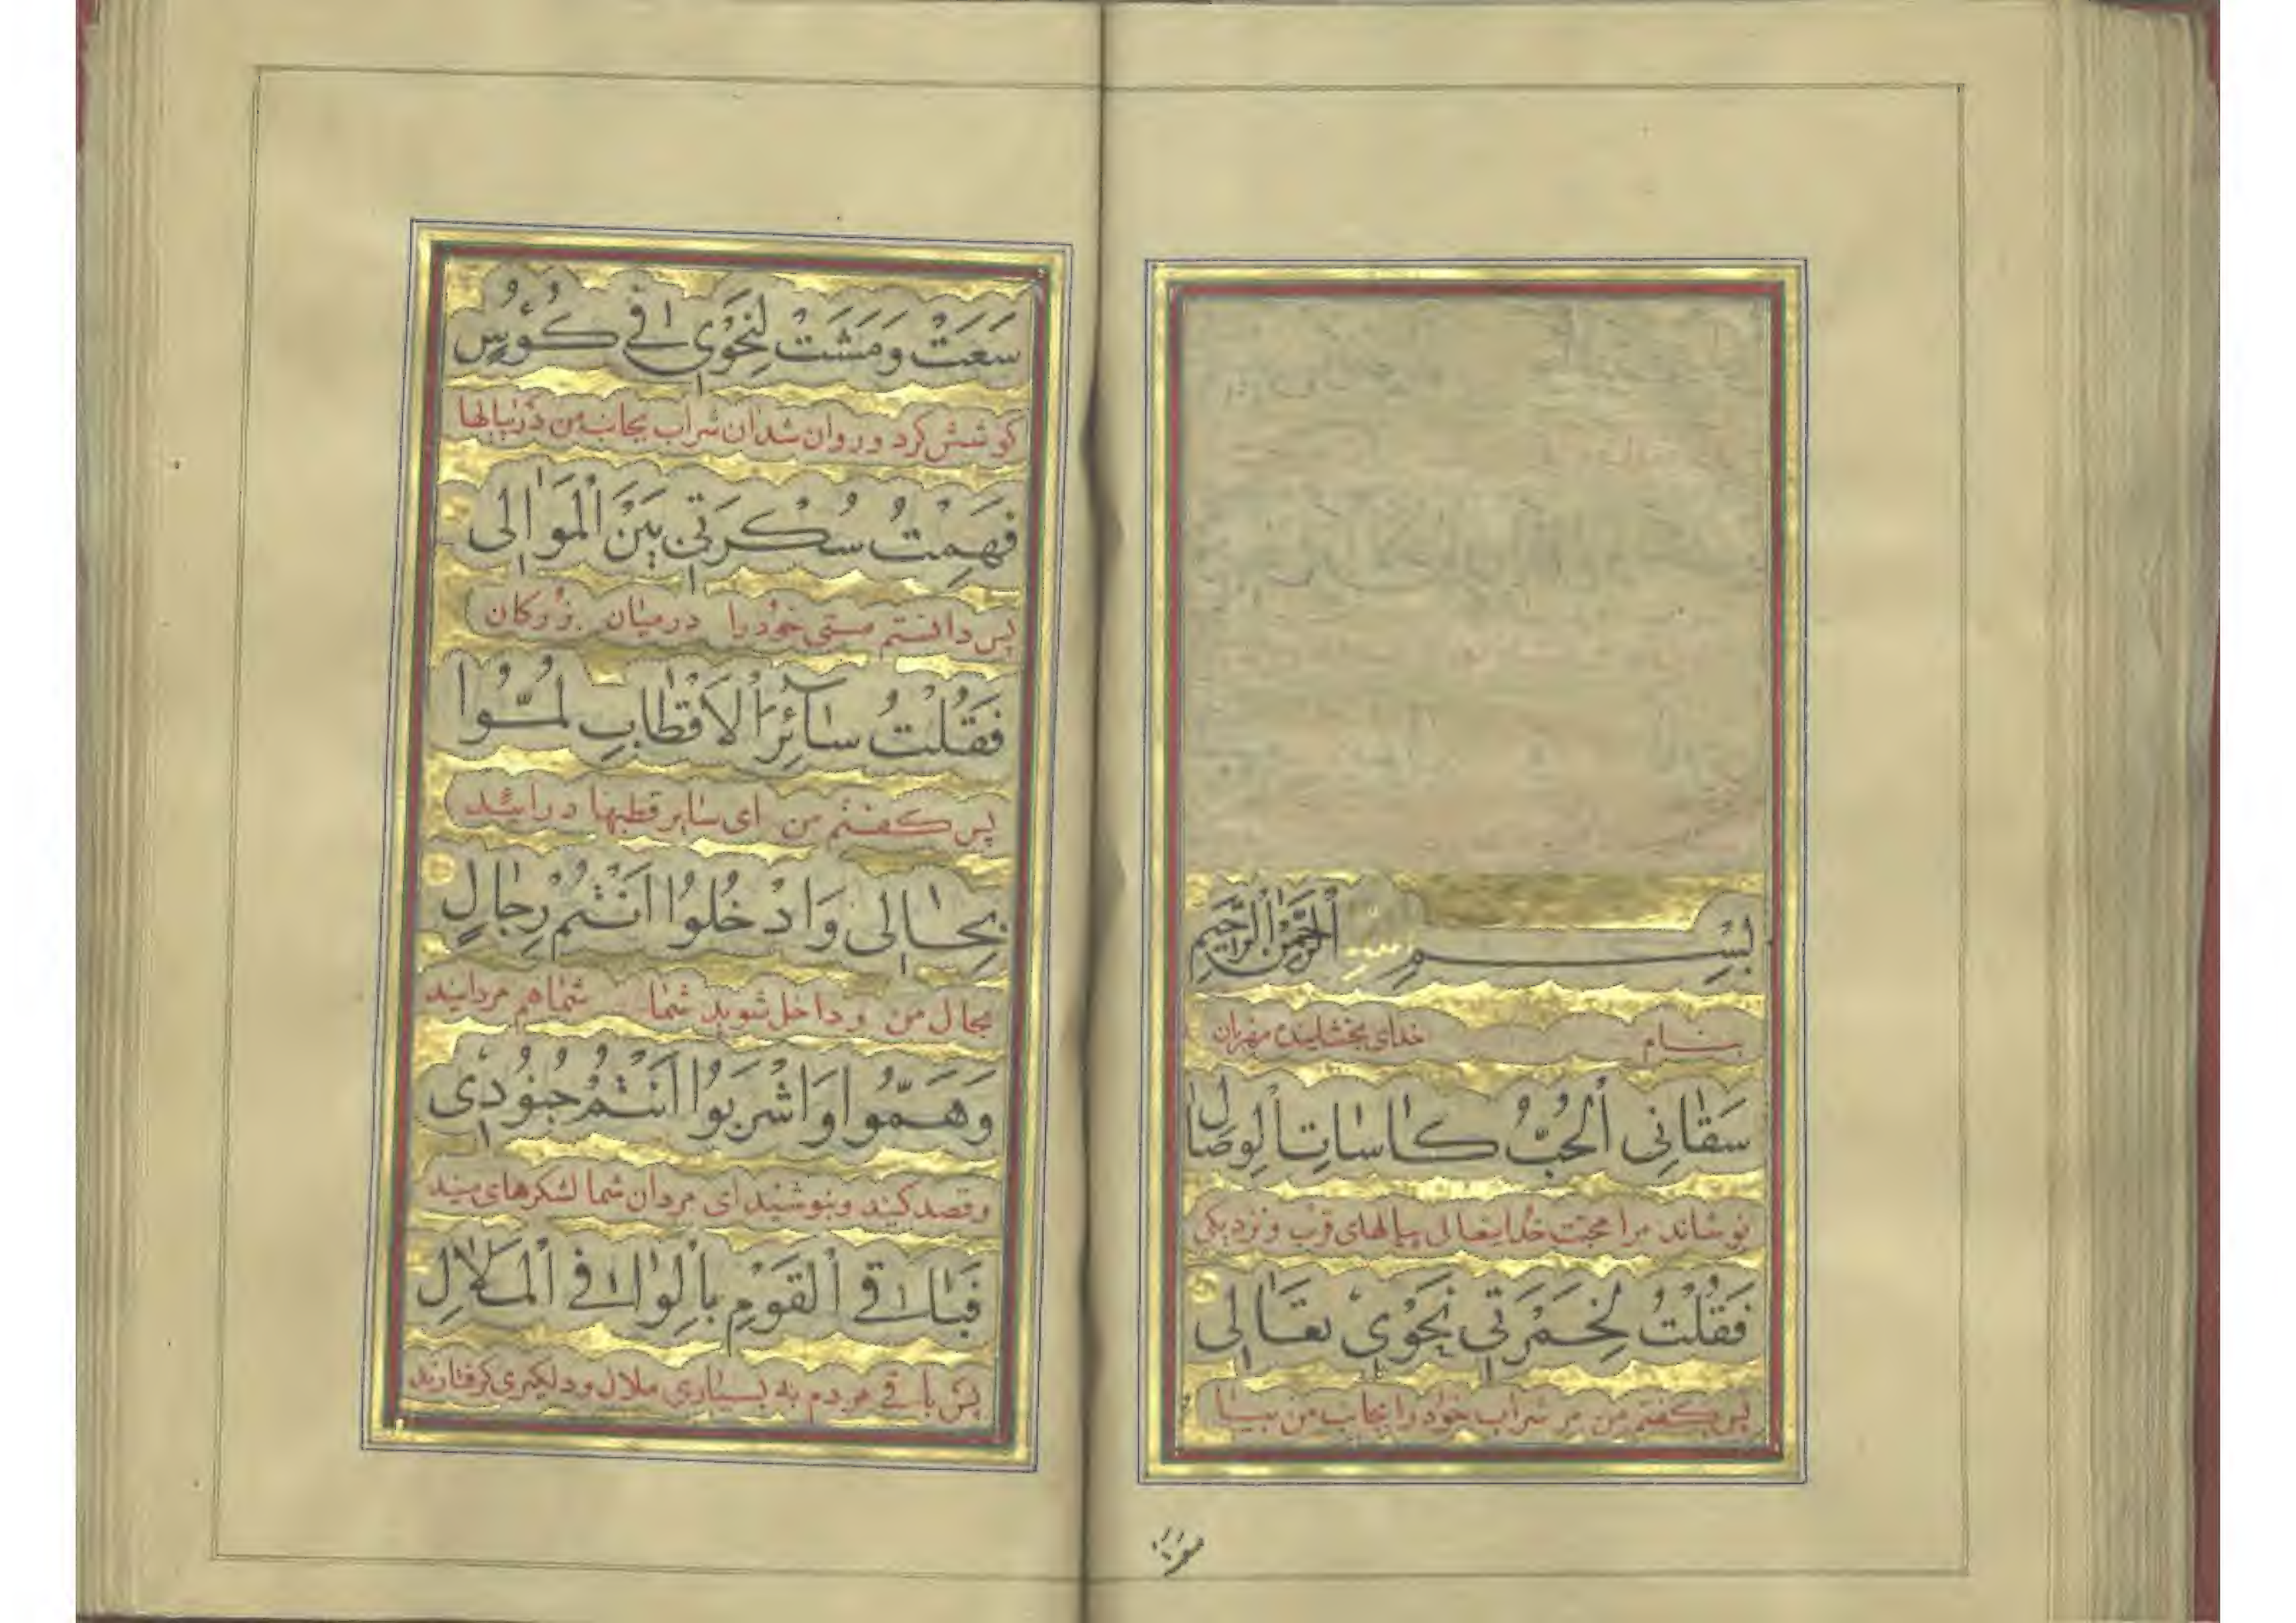 بِسْمِ اللّٰهِ الرَّحْمٰنِ الرَّحِيمِ
بنام خدای بخشاینده مهربان
سَقَانِی الْحُبُّ كَاسَاتِ الْوِصَالِ
نوشاند مرا محبت خدایتعالی پیالهای قرب و نزدیکی
فَقُلْتُ لِخَمْرَتِی نَحْوِی تَعَالِی
پس کفتم من مر شراب خود را بجانب من بیا
سَعَتْ وَمَشَتْ لِنَحْوِی فِی كُؤُسٍ
کوشش کرد و روان شد ان شراب بجانب من در پیالها
فَهِمْتُ سُكْرَتِی بَیْنَ الْمَوَالِی
پس دانستم مستی خود را درمیان بزرکان
فَقُلْتُ سَائِرَ الْاَقْطَابِ لُمُّوا
پس کفتم من ای سایر قطبها درائید
بِحَالِی وَادْخُلُوا اَنْتُمْ رِجَالِ
بحال من و داخل شوید شما شما هم مردانید
وَهَمُّوا وَاشْرَبُوا اَنْتُمْ جُنُودِی
و قصد کنید و بنوشید ای مردان شما لشکرهای منید
فَبَاقِی الْقَوْمِ بِالْوَا فِی الْمَلَالِ
پس باقی مردم به بسیاری ملال و دلکیری کرفتارند
سعت